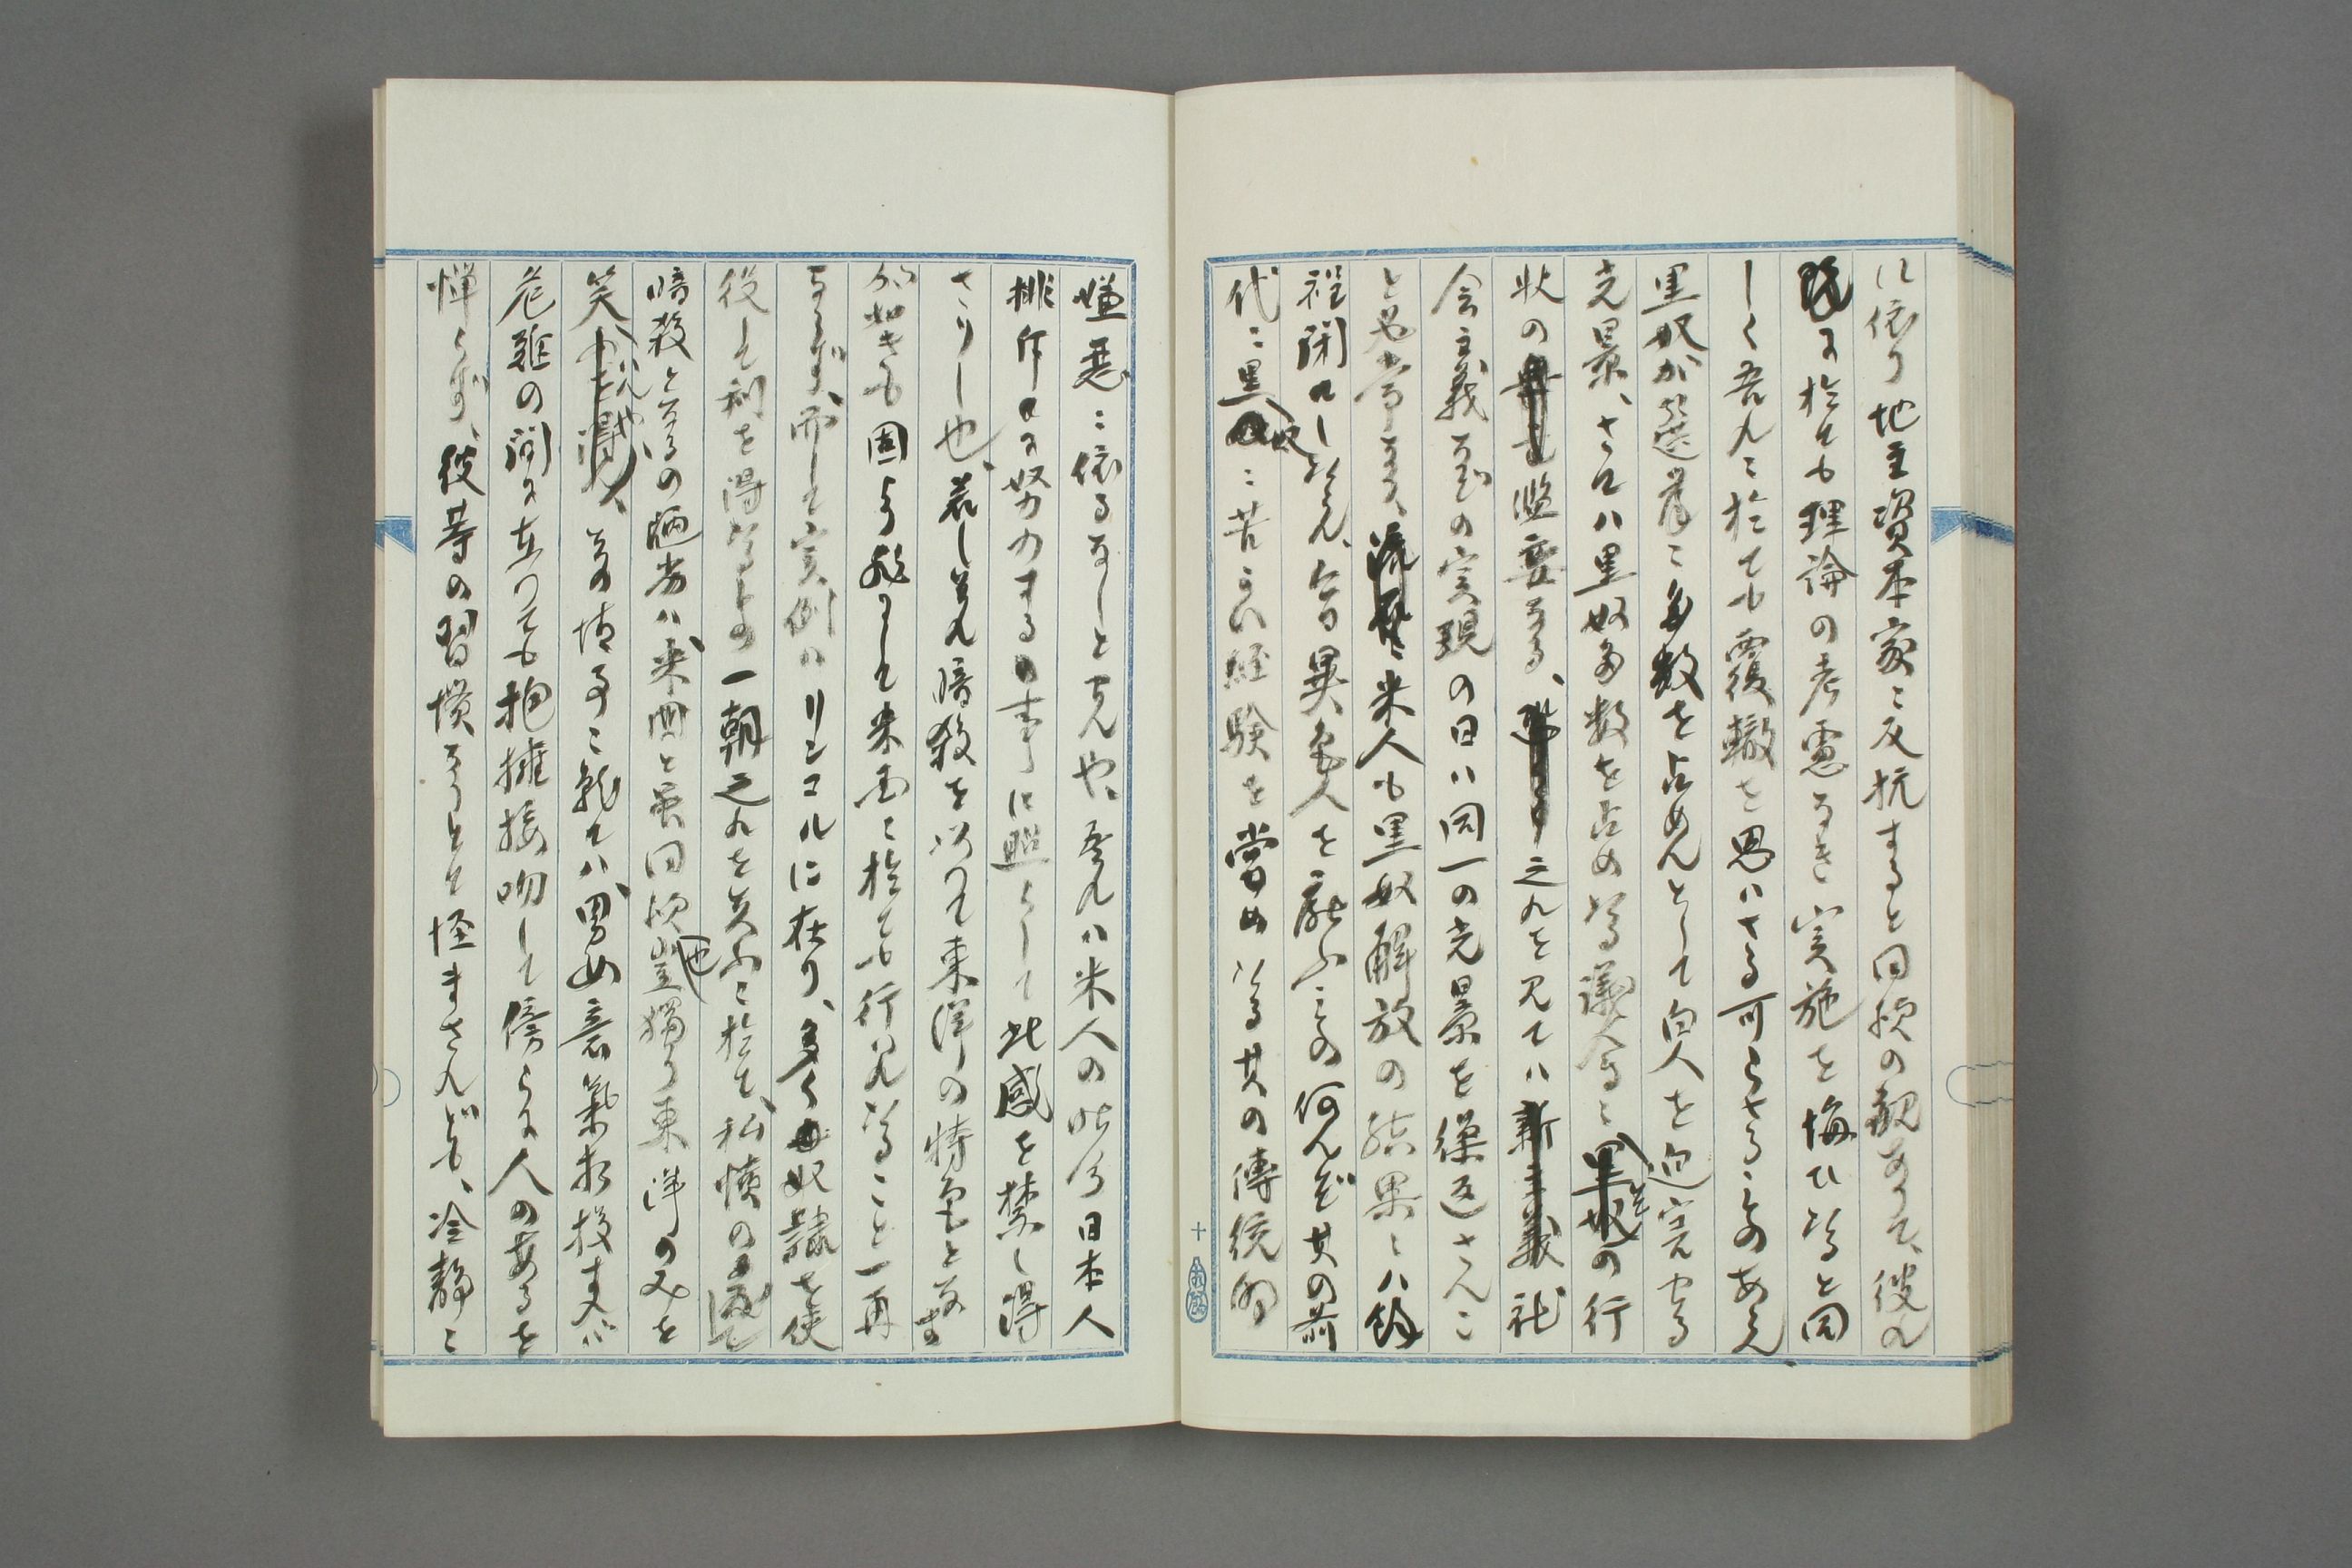 に依り地主資本家に反抗すると同様の観ありて、彼れ
に於ても理論の考慮なき実施を悔ひ居ると同
しく吾れに於ても覆轍を思はさる可らさることのあらん
黒奴が選挙に多数を占めんとして白人を迫害する
光景、さては黒奴多数を占め居る議会に の行
状の 監妄なる、 之れを見ては新主義社
会主義なぞの実現の日は同一の光景を繰返さんこ
と必常なり、 米人も黒奴解放の結果には餘
程閉口し居らん、今日異色人を厭ふことの何んぞ其の前
代に黒奴に苦しい経験を嘗め居る其の傳統的
嫌悪に依るなしと言んや、吾れは米人の此今日本人
排斥に努力する事に照らして此感を禁し得
さりし也、若し夫れ暗殺を以って東洋の特色となす
が如きも固より非にして米国に於ても行はれ居ること一再
ならず、而して実例はリンコルに在り、多く奴隷を使
役して利を得居るもの一朝之れを失ふに於て、私憤の
暗殺となるの陋劣は米国と雖同様也豈獨り東洋のみを
笑はんや、その情事に就ては、男女意氣相投ずれば
危難の間に立りても抱擁接吻して傍らに人の有るを
憚らず、彼等の習慣なりとて怪まされども、冷静に
十